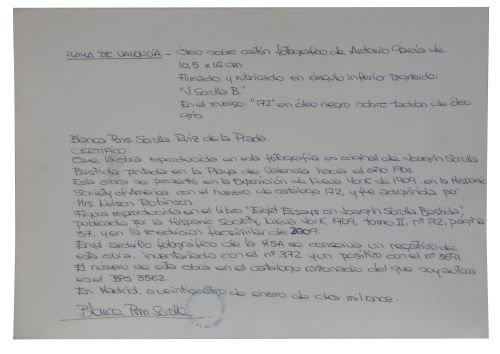 PLAYA DE VALENCIA - Óleo sobre cartón fotográfico de Antonio García de
10,5 x 16 cm.
Firmado y rubricado en ángulo inferior izquierdo:
"J Sorolla B."
En el reverso: "172" en óleo negro sobre tachón de óleo
gris.
Blanca Pons-Sorolla Ruiz de la Prada.
CERTIFICO:
Que la obra reproducida en esta fotografía es original de Joaquín Sorolla
Bastida pintada en la Playa de Valencia hacia el año 1904.
Esta obra se presentó en la Exposición de Nueva York de 1909, en la Hispanic
Society of America con el número de catálogo 172, y fue adquirida por
Mrs. Nelson Robinson.
Figura reproducida en el libro "Eight Essays on Joaquín Sorolla Bastida",
publicado por la Hispanic Society, Nueva York, 1909, tomo II, nº 172, página
37, y en la reedición facsimilar de 2009.
En el archivo fotográfico de la HSA se conserva un negativo de
esta obra, inventariado con el nº 372 y un positivo con el nº 3691.
El número de esta obra en el catálogo razonado del que soy autora
es el BPS 3562.
En Madrid, a veinticuatro de enero de dos mil once.
Blanca Pons Sorolla